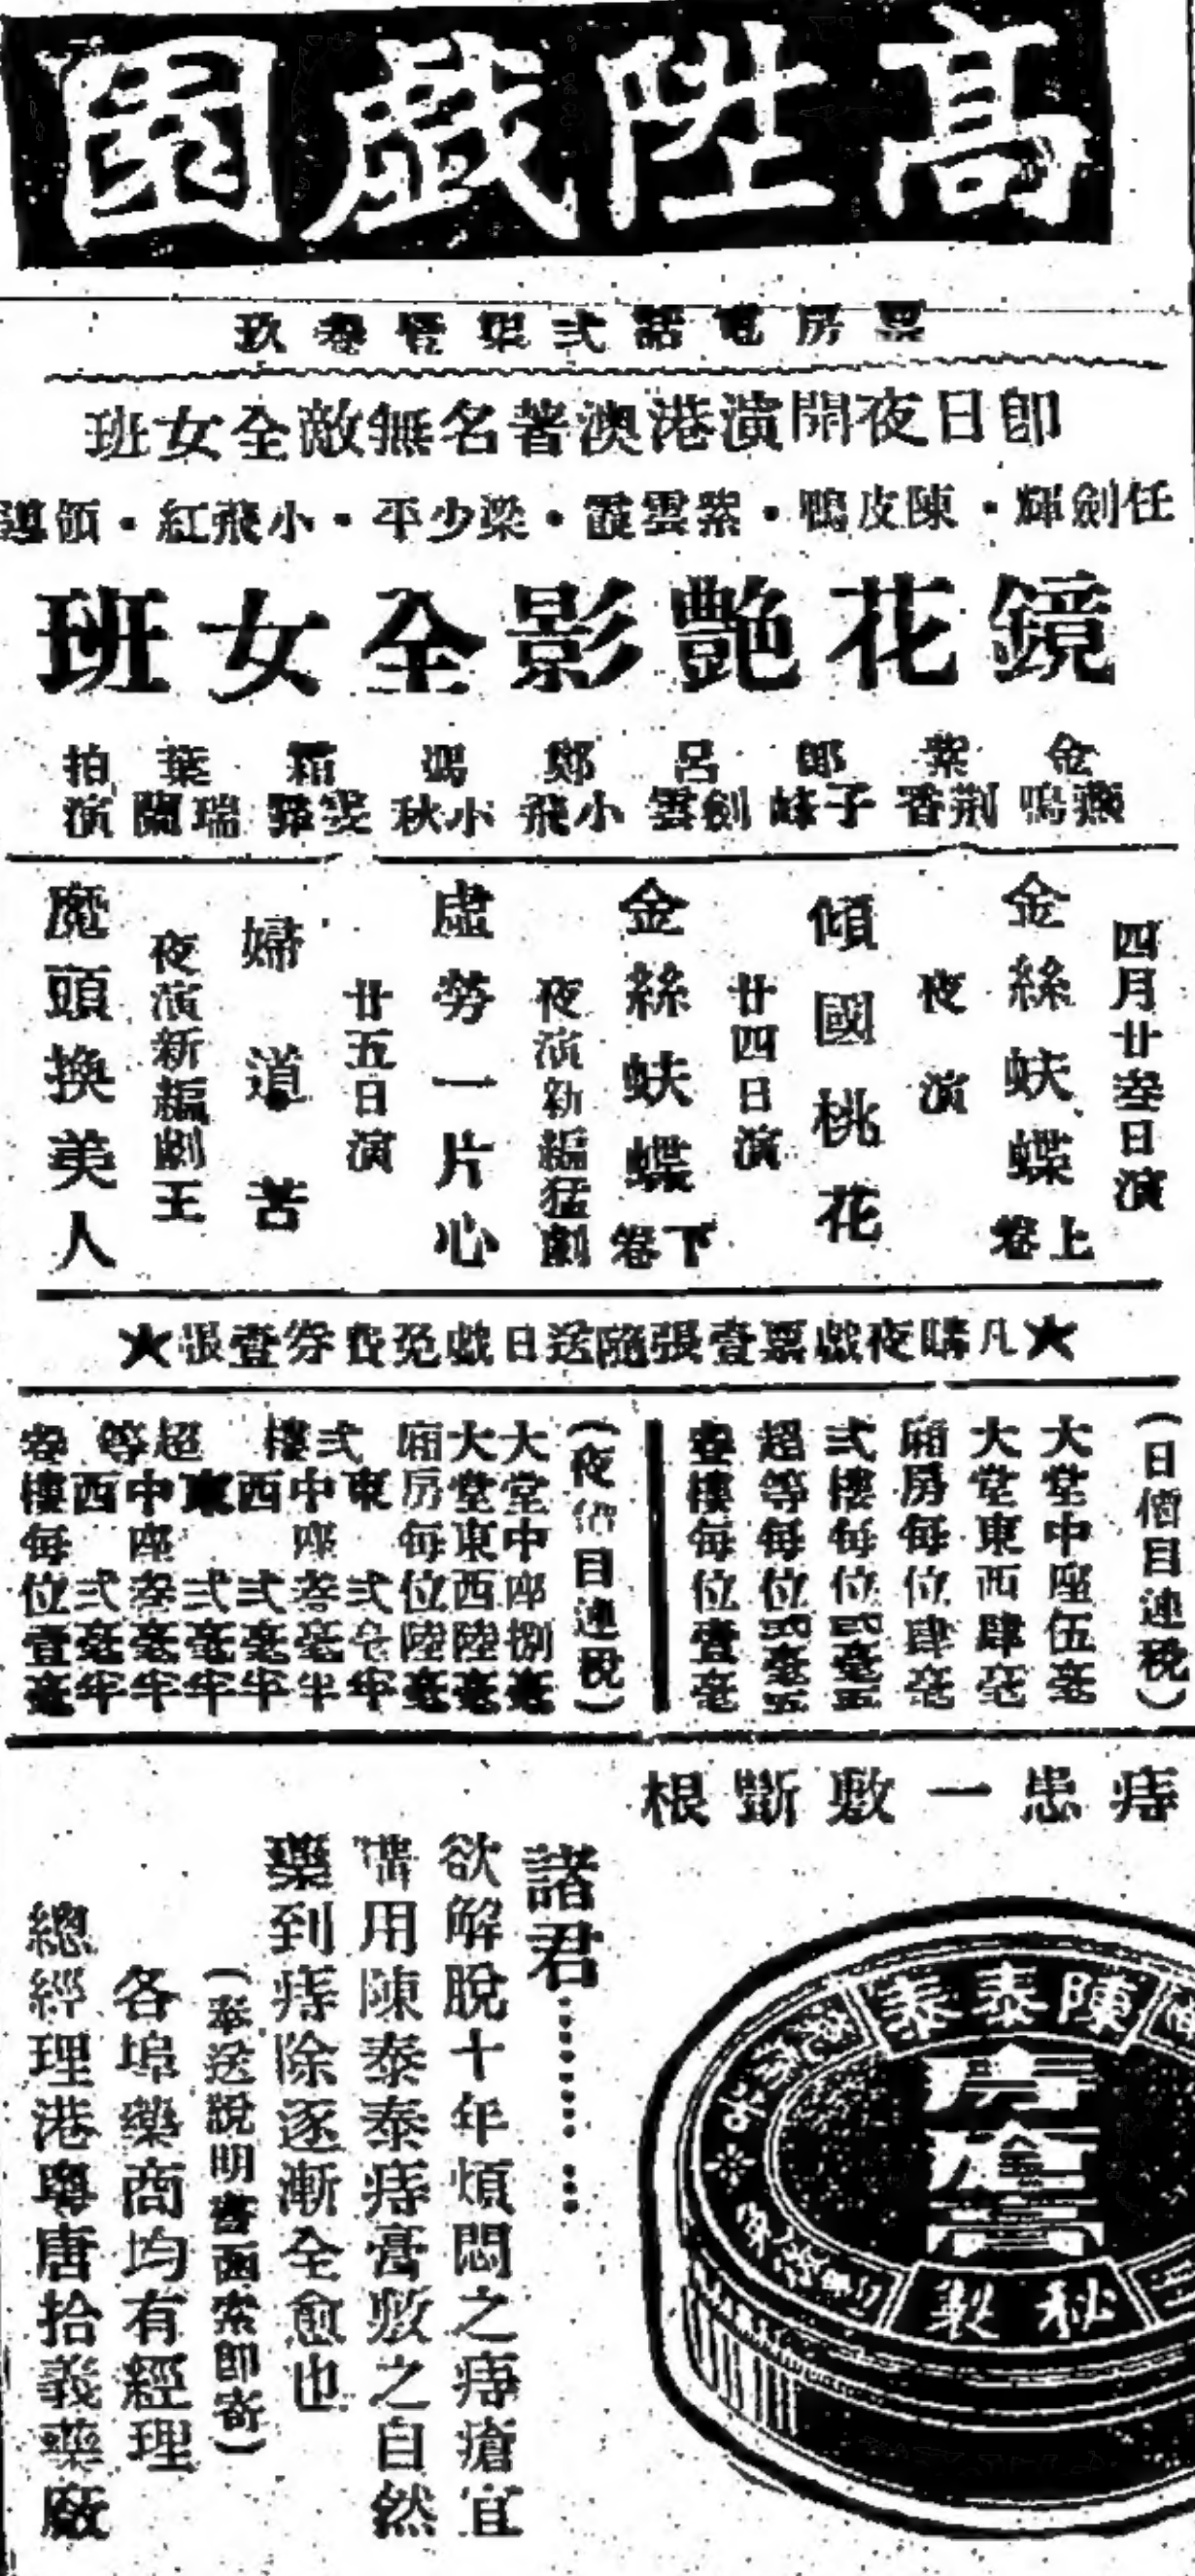 高陞戲園
票房電話弍柒壹叁玖
即日夜開演港澳著名無敵全女班
任劍輝・陳皮鴨・紫雲霞・梁少平・小飛紅・領導
鏡花艷影全女班
金燕鳴
紫荆香
鄧子峰
呂劍雲
鄭小飛
馮小秋
霜雯舞
葉瑞蘭
拍演
四月廿叁日演
金絲蚨蝶上卷
夜演
傾國桃花
廿四日演
金絲蚨蝶下卷
夜演新編猛劇
虛勞一片心
廿五日演
婦道苦
夜演新編劇王
魔頭換美人
★凡購夜戲票壹張隨送日戲免費券壹張★
(日價目連稅)
大堂中座伍毫
大堂東西肆毫
廂房每位肆毫
弍樓每位弍毫五
超等每位弍毫五
叁樓每位壹毫
(夜價目連稅)
大堂中座捌毫
大堂東西陸毫
廂房每位陸毫
弍樓
東弍毫半
中座叁毫半
西弍毫半
超等
東弍毫半
中座叁毫半
西弍毫半
叁樓每位壹毫
痔患一敷斷根
諸君………
欲解脫十年煩悶之痔瘡宜
備用陳泰泰痔膏敷之自然
藥到痔除逐漸全愈也
(奉送說明書函索即寄)
各埠藥商均有經理
總經理港粵唐拾義藥廠
陳泰泰
痔瘡膏
秘製